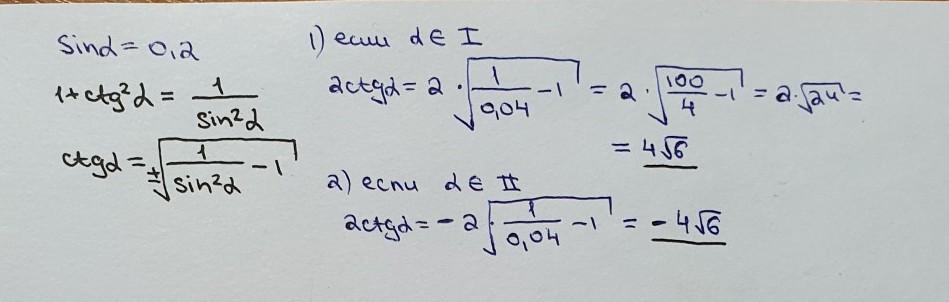 sinα = 0,2
1+ctg²α = 1/sin²α
ctgα = ±√(1/sin²α − 1)
1) если α ∈ I
2ctgα = 2 · √(1/0,04 − 1) = 2 · √(100/4 − 1) = 2·√24 =
= 4√6
2) если α ∈ II
2ctgα = − 2√(1/0,04 − 1) = − 4√6